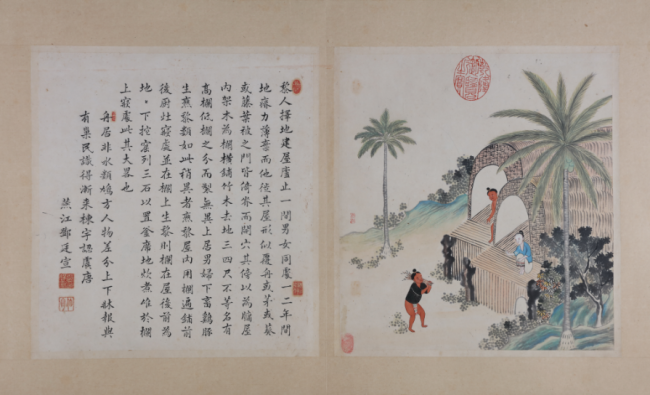 黎人擇地建屋廬止一間男女同處一二年間
地瘠力薄而他徙其屋形似覆舟或茅或葵
或藤葉被之門皆倚脊而開穴其傍以為牖屋
內架木為欄橫鋪竹木去地三四尺不等名有
高欄低欄之分而製無異上居男婦下畜鷄豚
生熟黎類如此稍異者熟黎屋內用欄通鋪前
後廚灶寢處並在欄上生黎則欄在屋後前為
地下挖窰列三石以置釜席地炊煮於欄
上寢處此其大畧也
舟居非水類鳩方人物差分上下與
有巢民識得漸來棟宇認虞唐
江鄧廷宣